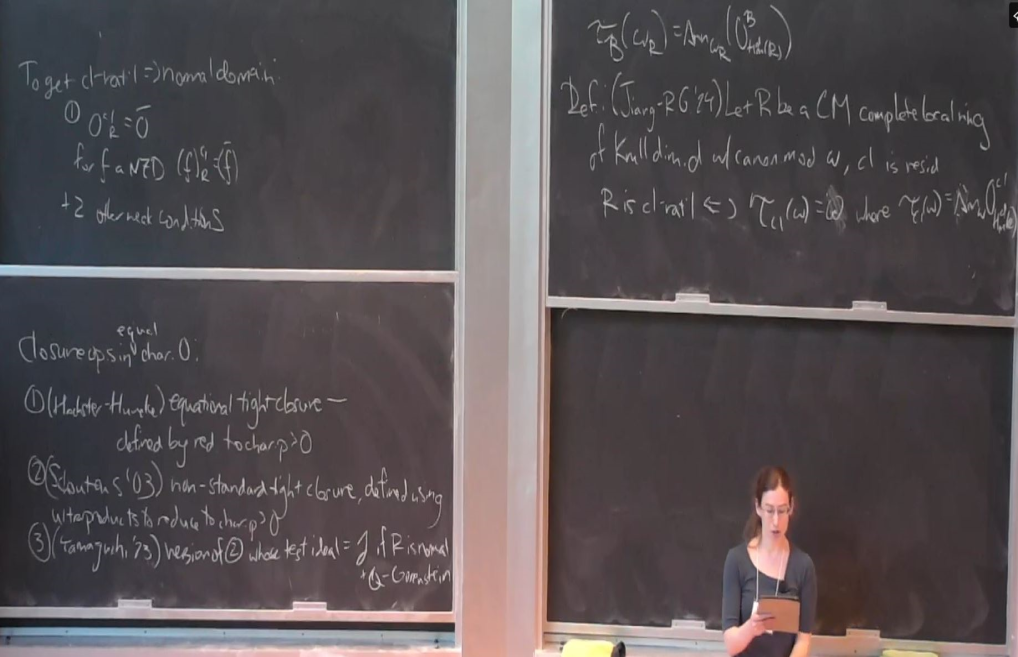 To get cl-rat'l => normal domain:
① 0^{cl}_R = \bar{0}
for f a NZD (f)^{cl}_R = \overline{(f)}
+2 other weak conditions
equal
Closure ops in char. 0:
① (Hochster-Huneke) equational tight closure —
defined by red to char p>0
② (Schoutens '03) non-standard tight closure, defined using
ultraproducts to reduce to char p>0
③ (Yamaguchi, '23) version of ② whose test ideal = J if R is normal
+ Q-Gorenstein
τ_B(ω_R) = Ann_{ω_R}(0^B_{H^d_m(R)})
Def: (Jiang-RG '24) Let R be a CM complete local ring
of Krull dim. d w/ canon mod ω, cl is resid
R is cl-rat'l <=> τ_{cl}(ω) = ω where τ_{cl}(ω) = Ann_ω 0^{cl}_{H^d_m(R)}